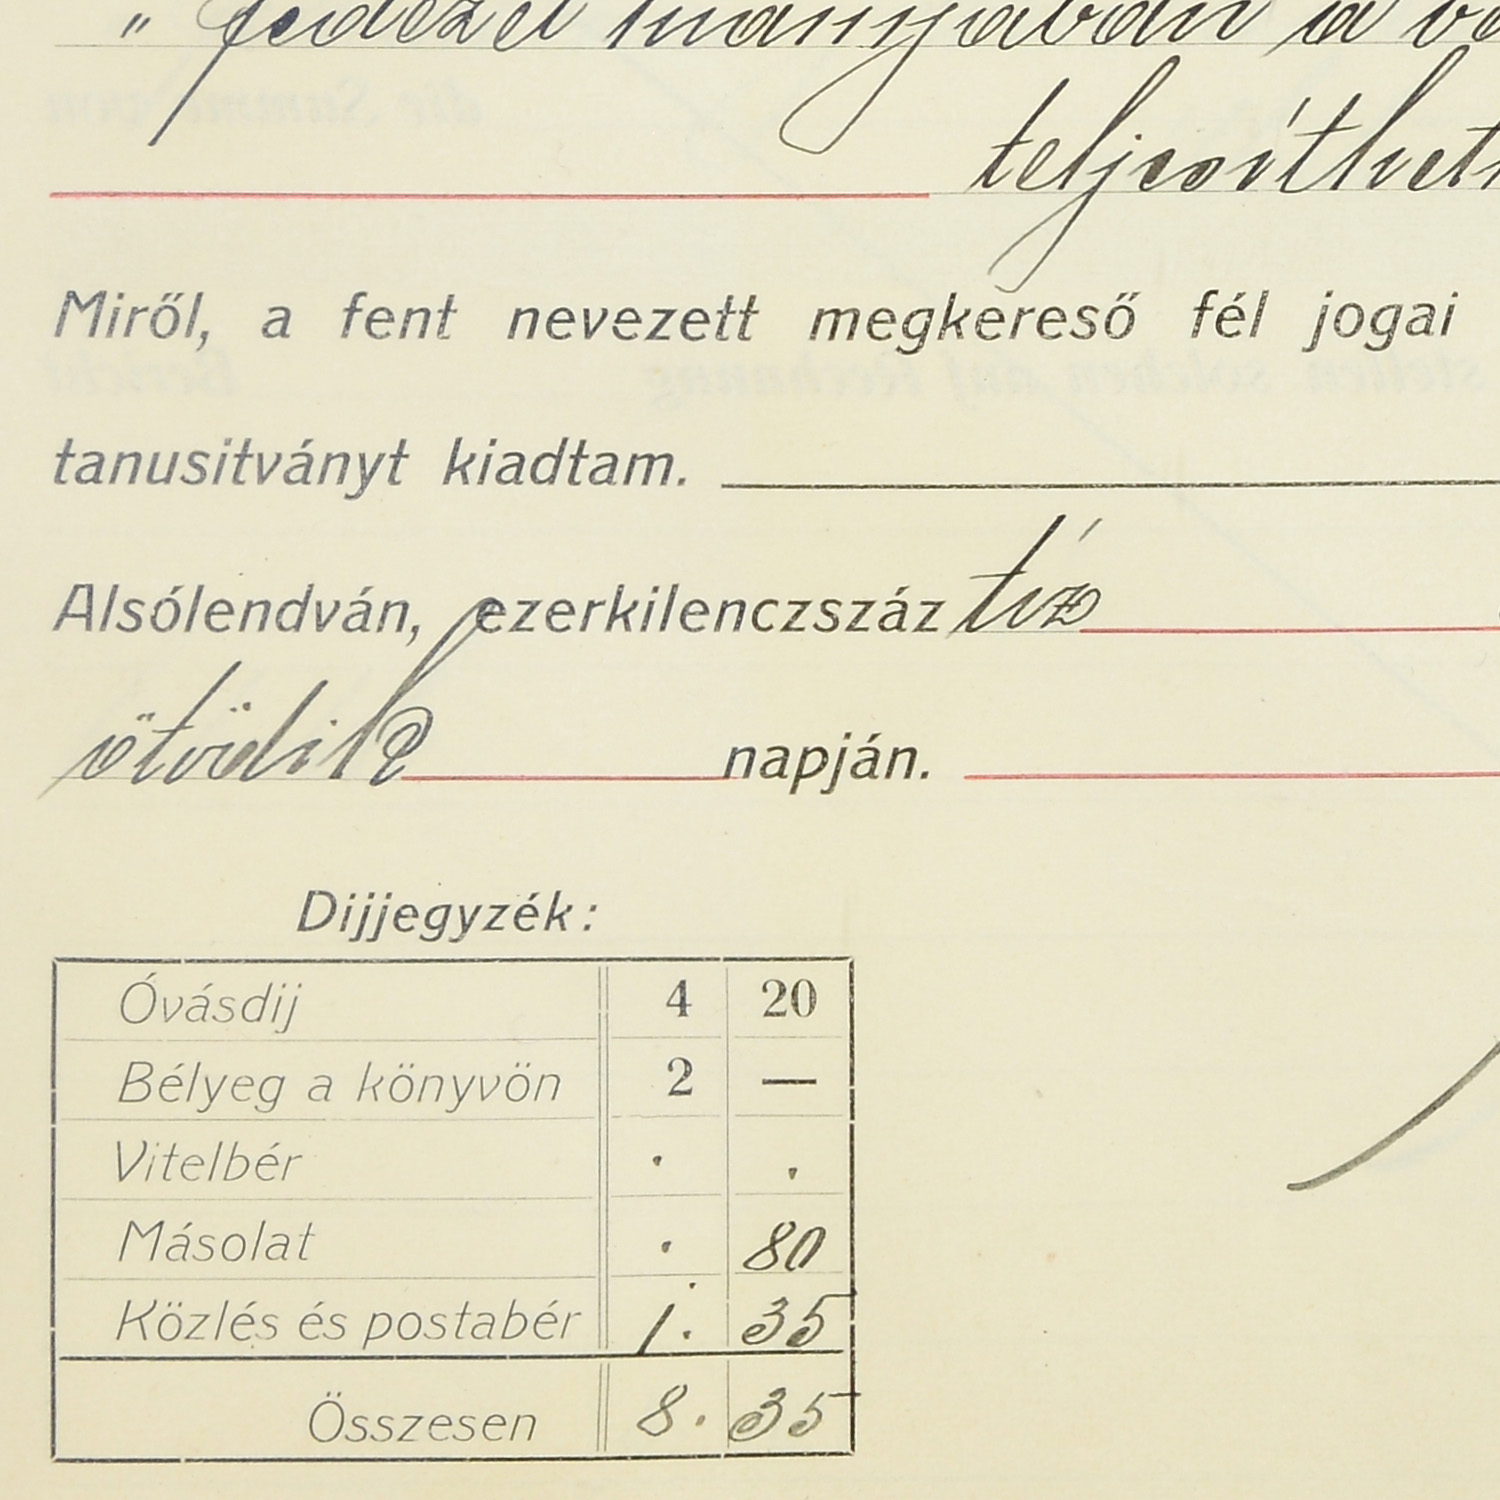 " fedezet hiányában a
teljesíthet
Miről, a fent nevezett megkereső fél jogai
tanusitványt kiadtam.
Alsólendván, ezerkilenczszáz tíz
ötödik napján.
Dijjegyzék:
Óvásdij 4 20
Bélyeg a könyvön 2 —
Vitelbér . .
Másolat . 80
Közlés és postabér 1. 35
Összesen 8. 35